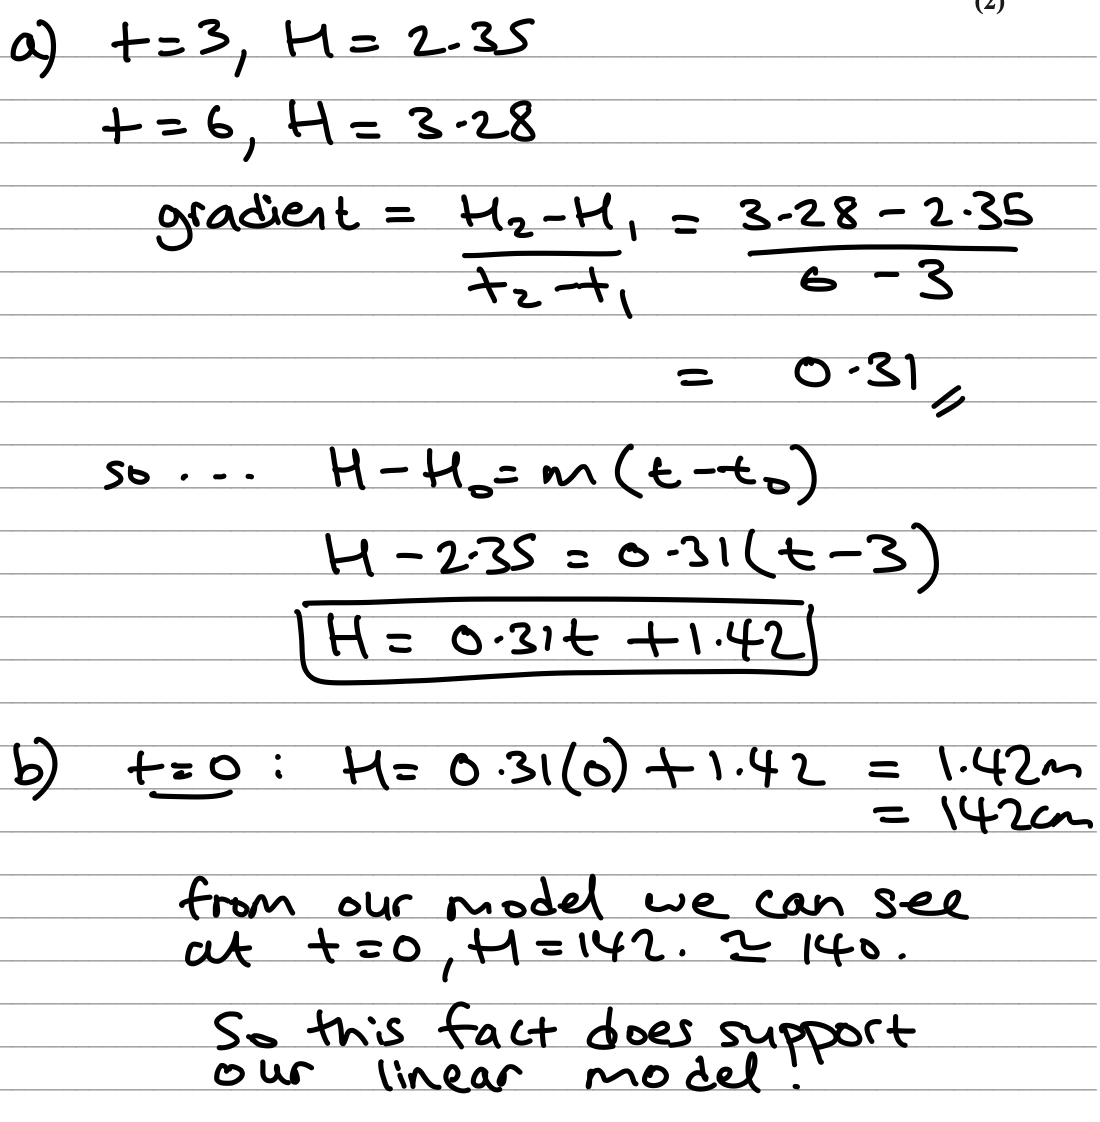 (2)
a) t=3, H = 2.35
t = 6, H = 3.28
gradient = H₂-H₁ / t₂-t₁ = 3.28 - 2.35 / 6 - 3
= 0.31
so ... H - H₀ = m (t-t₀)
H - 2.35 = 0.31(t-3)
H = 0.31t + 1.42
b) t=0 : H= 0.31(0) + 1.42 = 1.42m
= 142cm
from our model we can see
at t=0, H=142. ≃ 140.
So this fact does support
our linear model.